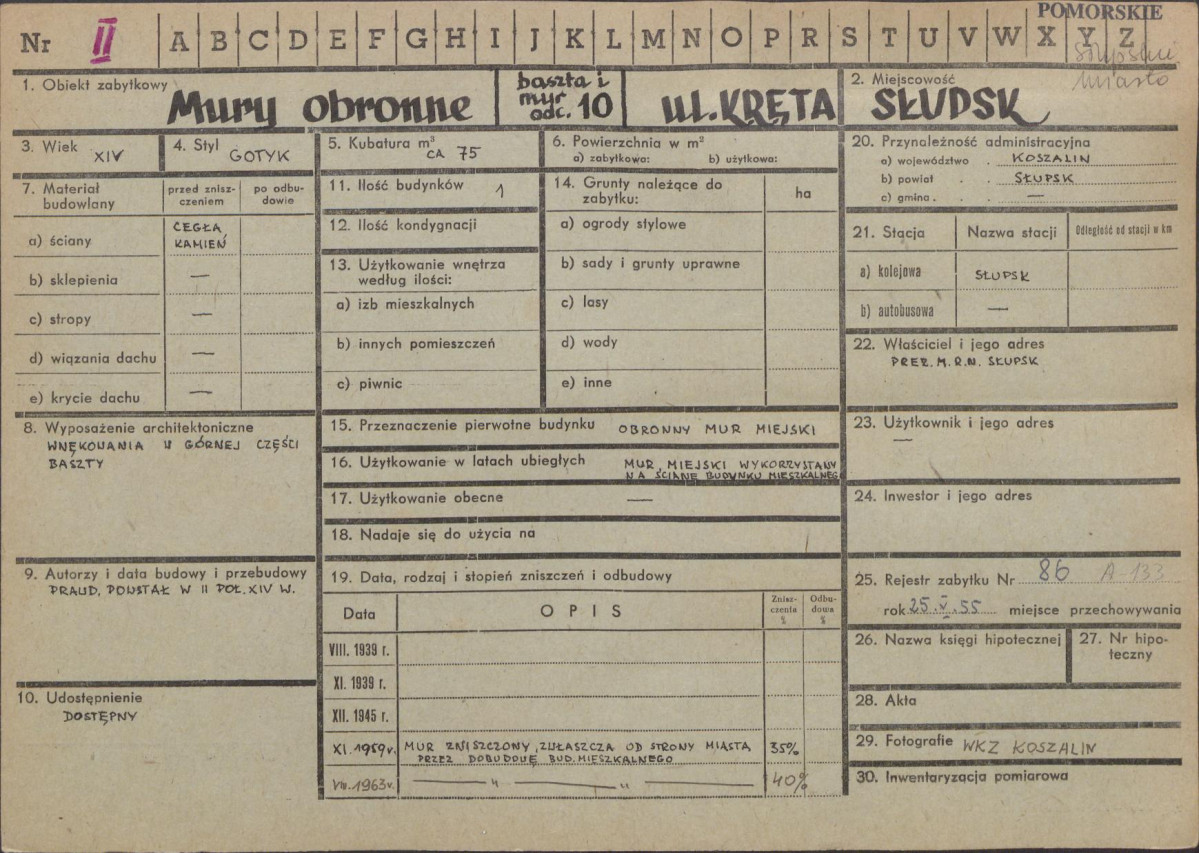 POMORSKIE
Nr II A B C D E F G H I J K L M N O P R S T U V W X Y Z
miasto
1. Obiekt zabytkowy
Mury obronne
baszta i
mur
odc. 10
ul. KRĘTA
2. Miejscowość
SŁUPSK
3. Wiek XIV
4. Styl GOTYK
5. Kubatura m³
CA 75
6. Powierzchnia w m²
a) zabytkowa: b) użytkowa:
7. Materiał
budowlany
przed znisz-
czeniem
po odbu-
dowie
a) ściany
CEGŁA,
KAMIEŃ
b) sklepienia —
c) stropy —
d) wiązania dachu —
e) krycie dachu —
8. Wyposażenie architektoniczne
WNĘKOWANIA W GÓRNEJ CZĘŚCI
BASZTY
9. Autorzy i data budowy i przebudowy
PRAWD. POWSTAŁ W II POŁ. XIV W.
10. Udostępnienie
DOSTĘPNY
11. Ilość budynków 1
12. Ilość kondygnacji
13. Użytkowanie wnętrza
według ilości:
a) izb mieszkalnych
b) innych pomieszczeń
c) piwnic
14. Grunty należące do
zabytku:
ha
a) ogrody stylowe
b) sady i grunty uprawne
c) lasy
d) wody
e) inne
15. Przeznaczenie pierwotne budynku OBRONNY MUR MIEJSKI
16. Użytkowanie w latach ubiegłych MUR MIEJSKI WYKORZYSTANY
NA ŚCIANĘ BUDYNKU MIESZKALNEGO
17. Użytkowanie obecne —
18. Nadaje się do użycia na
19. Data, rodzaj i stopień zniszczeń i odbudowy
Data
OPIS
Znisz-
czenia
%
Odbu-
dowa
%
VIII. 1939 r.
XI. 1939 r.
XII. 1945 r.
XI. 1959 r. MUR ZNISZCZONY, ZWŁASZCZA OD STRONY MIASTA 35%
PRZEZ DOBUDOWĘ BUD. MIESZKALNEGO
VIII. 1963 r. — " — " — 40%
20. Przynależność administracyjna
a) województwo . KOSZALIN
b) powiat . . SŁUPSK
c) gmina . . . —
21. Stacja
Nazwa stacji
Odległość od stacji w km
a) kolejowa SŁUPSK
b) autobusowa —
22. Właściciel i jego adres
PREZ. M.R.N. SŁUPSK
23. Użytkownik i jego adres
—
24. Inwestor i jego adres
25. Rejestr zabytku Nr 86 A-133
rok 25.V.55 miejsce przechowywania
26. Nazwa księgi hipotecznej
27. Nr hipo-
teczny
28. Akta
29. Fotografie WKZ KOSZALIN
30. Inwentaryzacja pomiarowa